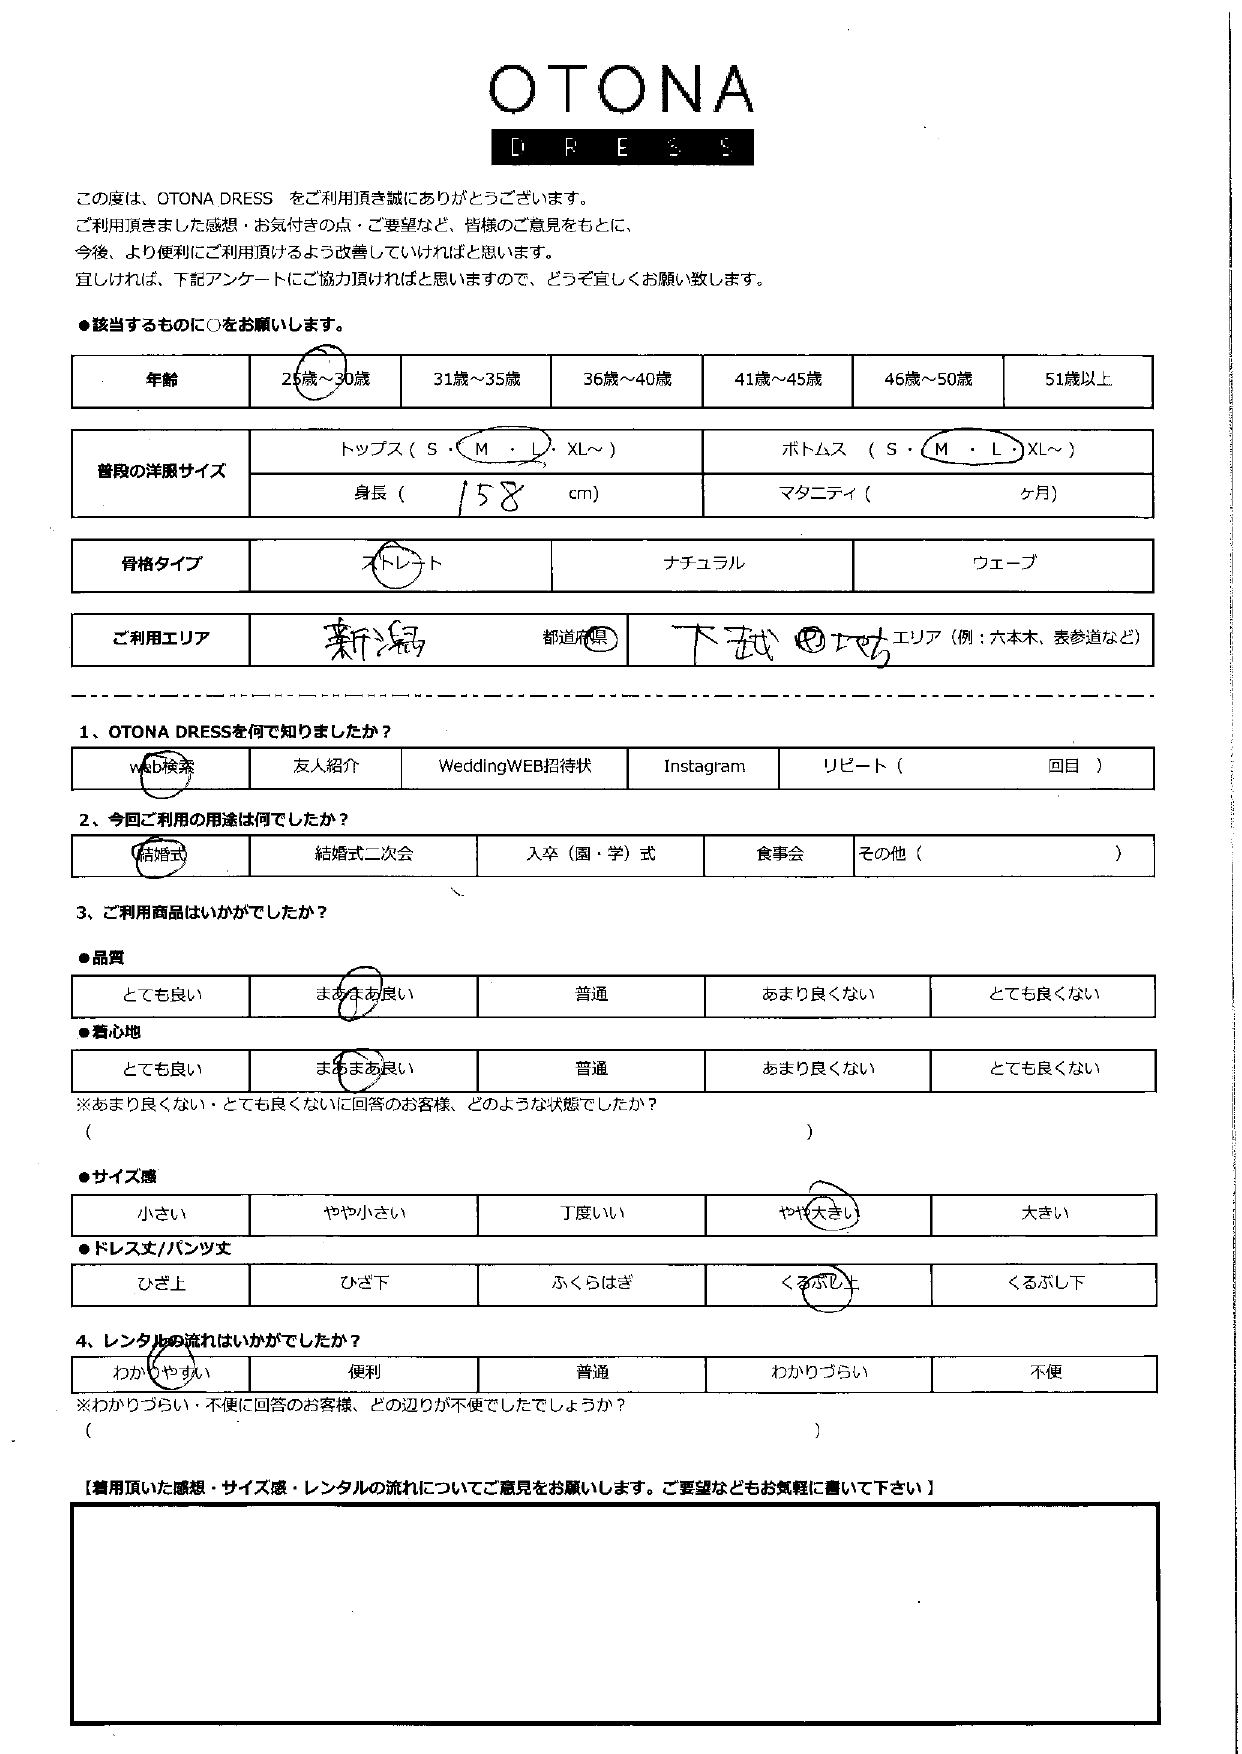 OTONA
DRESS
この度は、OTONA DRESS をご利用頂き誠にありがとうございます。
ご利用頂きました感想・お気付きの点・ご要望など、皆様のご意見をもとに、
今後、より便利にご利用頂けるよう改善していければと思います。
宜しければ、下記アンケートにご協力頂ければと思いますので、どうぞ宜しくお願い致します。
●該当するものに○をお願いします。
年齢 25歳～30歳 31歳～35歳 36歳～40歳 41歳～45歳 46歳～50歳 51歳以上
普段の洋服サイズ トップス ( S ・ M ・ L ・ XL～ ) ボトムス ( S ・ M ・ L ・ XL～ )
身長 ( 158 cm) マタニティ ( ケ月)
骨格タイプ ストレート ナチュラル ウェーブ
ご利用エリア 新潟 都道府県 下越 エリア（例：六本木、表参道など）
1、OTONA DRESSを何で知りましたか？
web検索 友人紹介 WeddingWEB招待状 Instagram リピート（ 回目 ）
2、今回ご利用の用途は何でしたか？
結婚式 結婚式二次会 入卒（園・学）式 食事会 その他（ ）
3、ご利用商品はいかがでしたか？
●品質
とても良い まあまあ良い 普通 あまり良くない とても良くない
●着心地
とても良い まあまあ良い 普通 あまり良くない とても良くない
※あまり良くない・とても良くないに回答のお客様、どのような状態でしたか？
( )
●サイズ感
小さい やや小さい 丁度いい やや大きい 大きい
●ドレス丈/パンツ丈
ひざ上 ひざ下 ふくらはぎ くるぶし上 くるぶし下
4、レンタルの流れはいかがでしたか？
わかりやすい 便利 普通 わかりづらい 不便
※わかりづらい・不便に回答のお客様、どの辺りが不便でしたでしょうか？
( )
【着用頂いた感想・サイズ感・レンタルの流れについてご意見をお願いします。ご要望などもお気軽に書いて下さい】